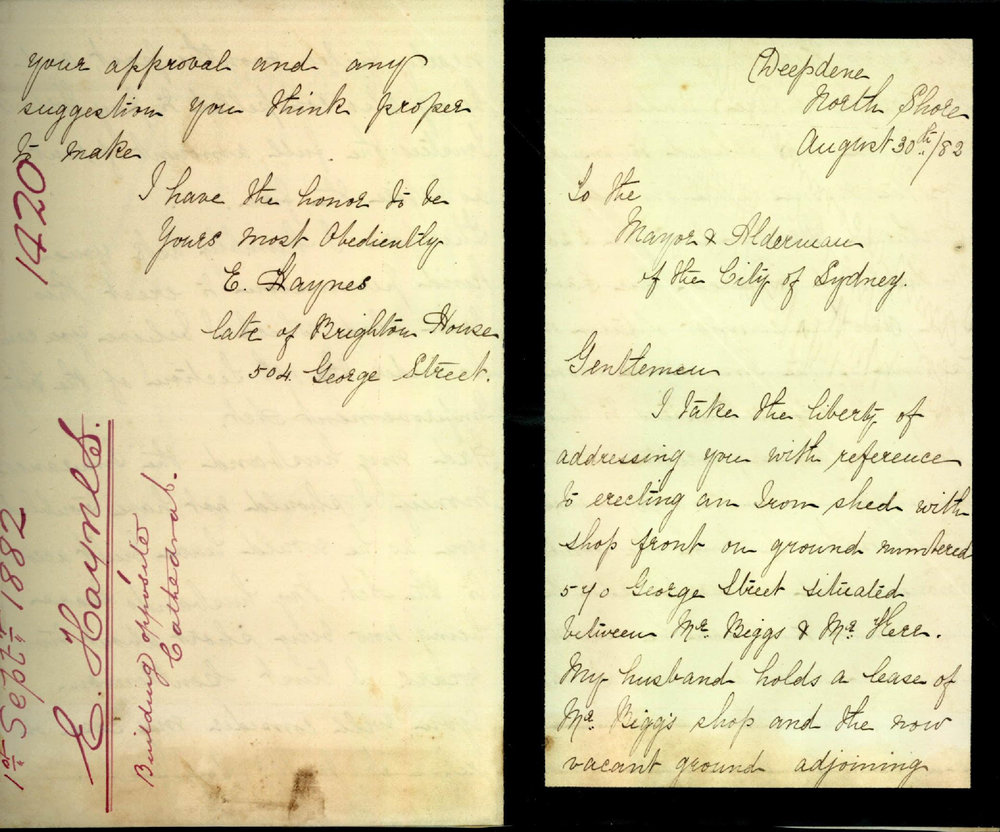 your approval and any
suggestion you think proper
to make
I have the honor to be
Yours most Obediently
E. Haynes
late of Brighton House
504 George Street.
1420
1st Septr 1882
E. Haynes.
Building opposite
Cathedral.
Deepdene
North Shore
August 30th/82
To the
Mayor & Alderman
of the City of Sydney.
Gentlemen
I take the liberty of
addressing you with reference
to erecting an Iron shed with
shop front on ground numbered
540 George Street situated
between Mr. Biggs & Mr. Kerr.
My husband holds a lease of
Mr. Biggs shop and the now
vacant ground adjoining